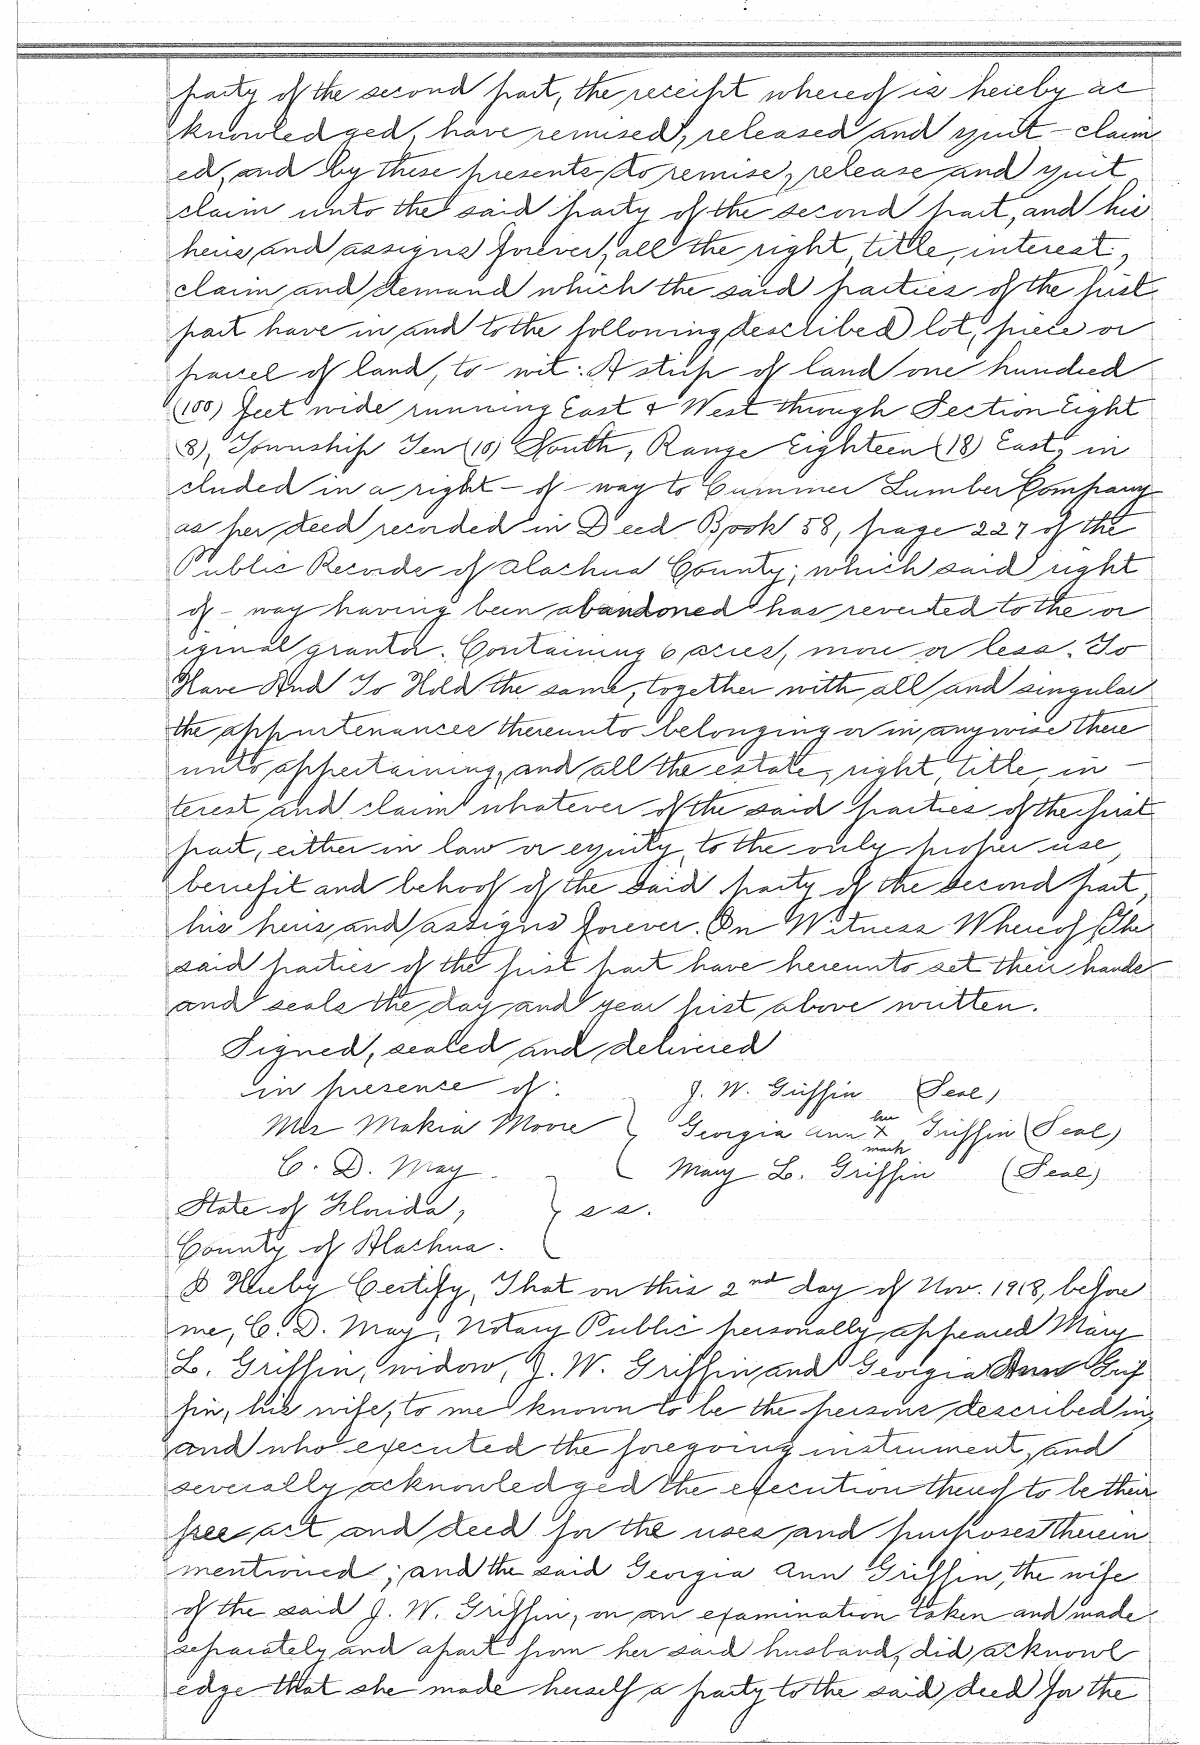 party of the second part, the receipt whereof is hereby ac
knowledged, have remised, released and quit-claim
ed, and by these presents do remise, release and quit
claim unto the said party of the second part, and his
heirs and assigns forever, all the right, title, interest,
claim and demand which the said parties of the first
part have in and to the following described lot, piece or
parcel of land, to-wit: A strip of land one hundred
(100) feet wide running East & West through Section Eight
(8), Township Ten (10) South, Range Eighteen (18) East, in
cluded in a right-of-way to Cummer Lumber Company
as per deed recorded in Deed Book 58, page 227 of the
Public Records of Alachua County; which said right
of-way having been abandoned has reverted to the or
iginal grantor. Containing 6 acres, more or less. To
Have And To Hold the same, together with all and singular
the appurtenances thereunto belonging or in anywise there
unto appertaining, and all the estate, right, title, in-
terest and claim whatever of the said parties of the first
part, either in law or equity, to the only proper use,
benefit and behoof of the said party of the second part,
his heirs and assigns forever. In Witness Whereof, The
said parties of the first part have hereunto set their hands
and seals the day and year first above written.
Signed, sealed and delivered
in presence of: J. W. Griffin (Seal)
Mrs Makia Moore } Georgia Ann her X mark Griffin (Seal)
C. D. May Mary L. Griffin (Seal)
State of Florida, } s s.
County of Alachua.
I Hereby Certify, That on this 2nd day of Nov. 1918, before
me, C. D. May, Notary Public personally appeared Mary
L. Griffin, widow, J. W. Griffin and Georgia Ann Grif
fin, his wife, to me known to be the persons described in,
and who executed the foregoing instrument, and
severally acknowledged the execution thereof to be their
free act and deed for the uses and purposes therein
mentioned; and the said Georgia Ann Griffin, the wife
of the said J. W. Griffin, on an examination taken and made
separately and apart from her said husband, did acknowl
edge that she made herself a party to the said deed for the